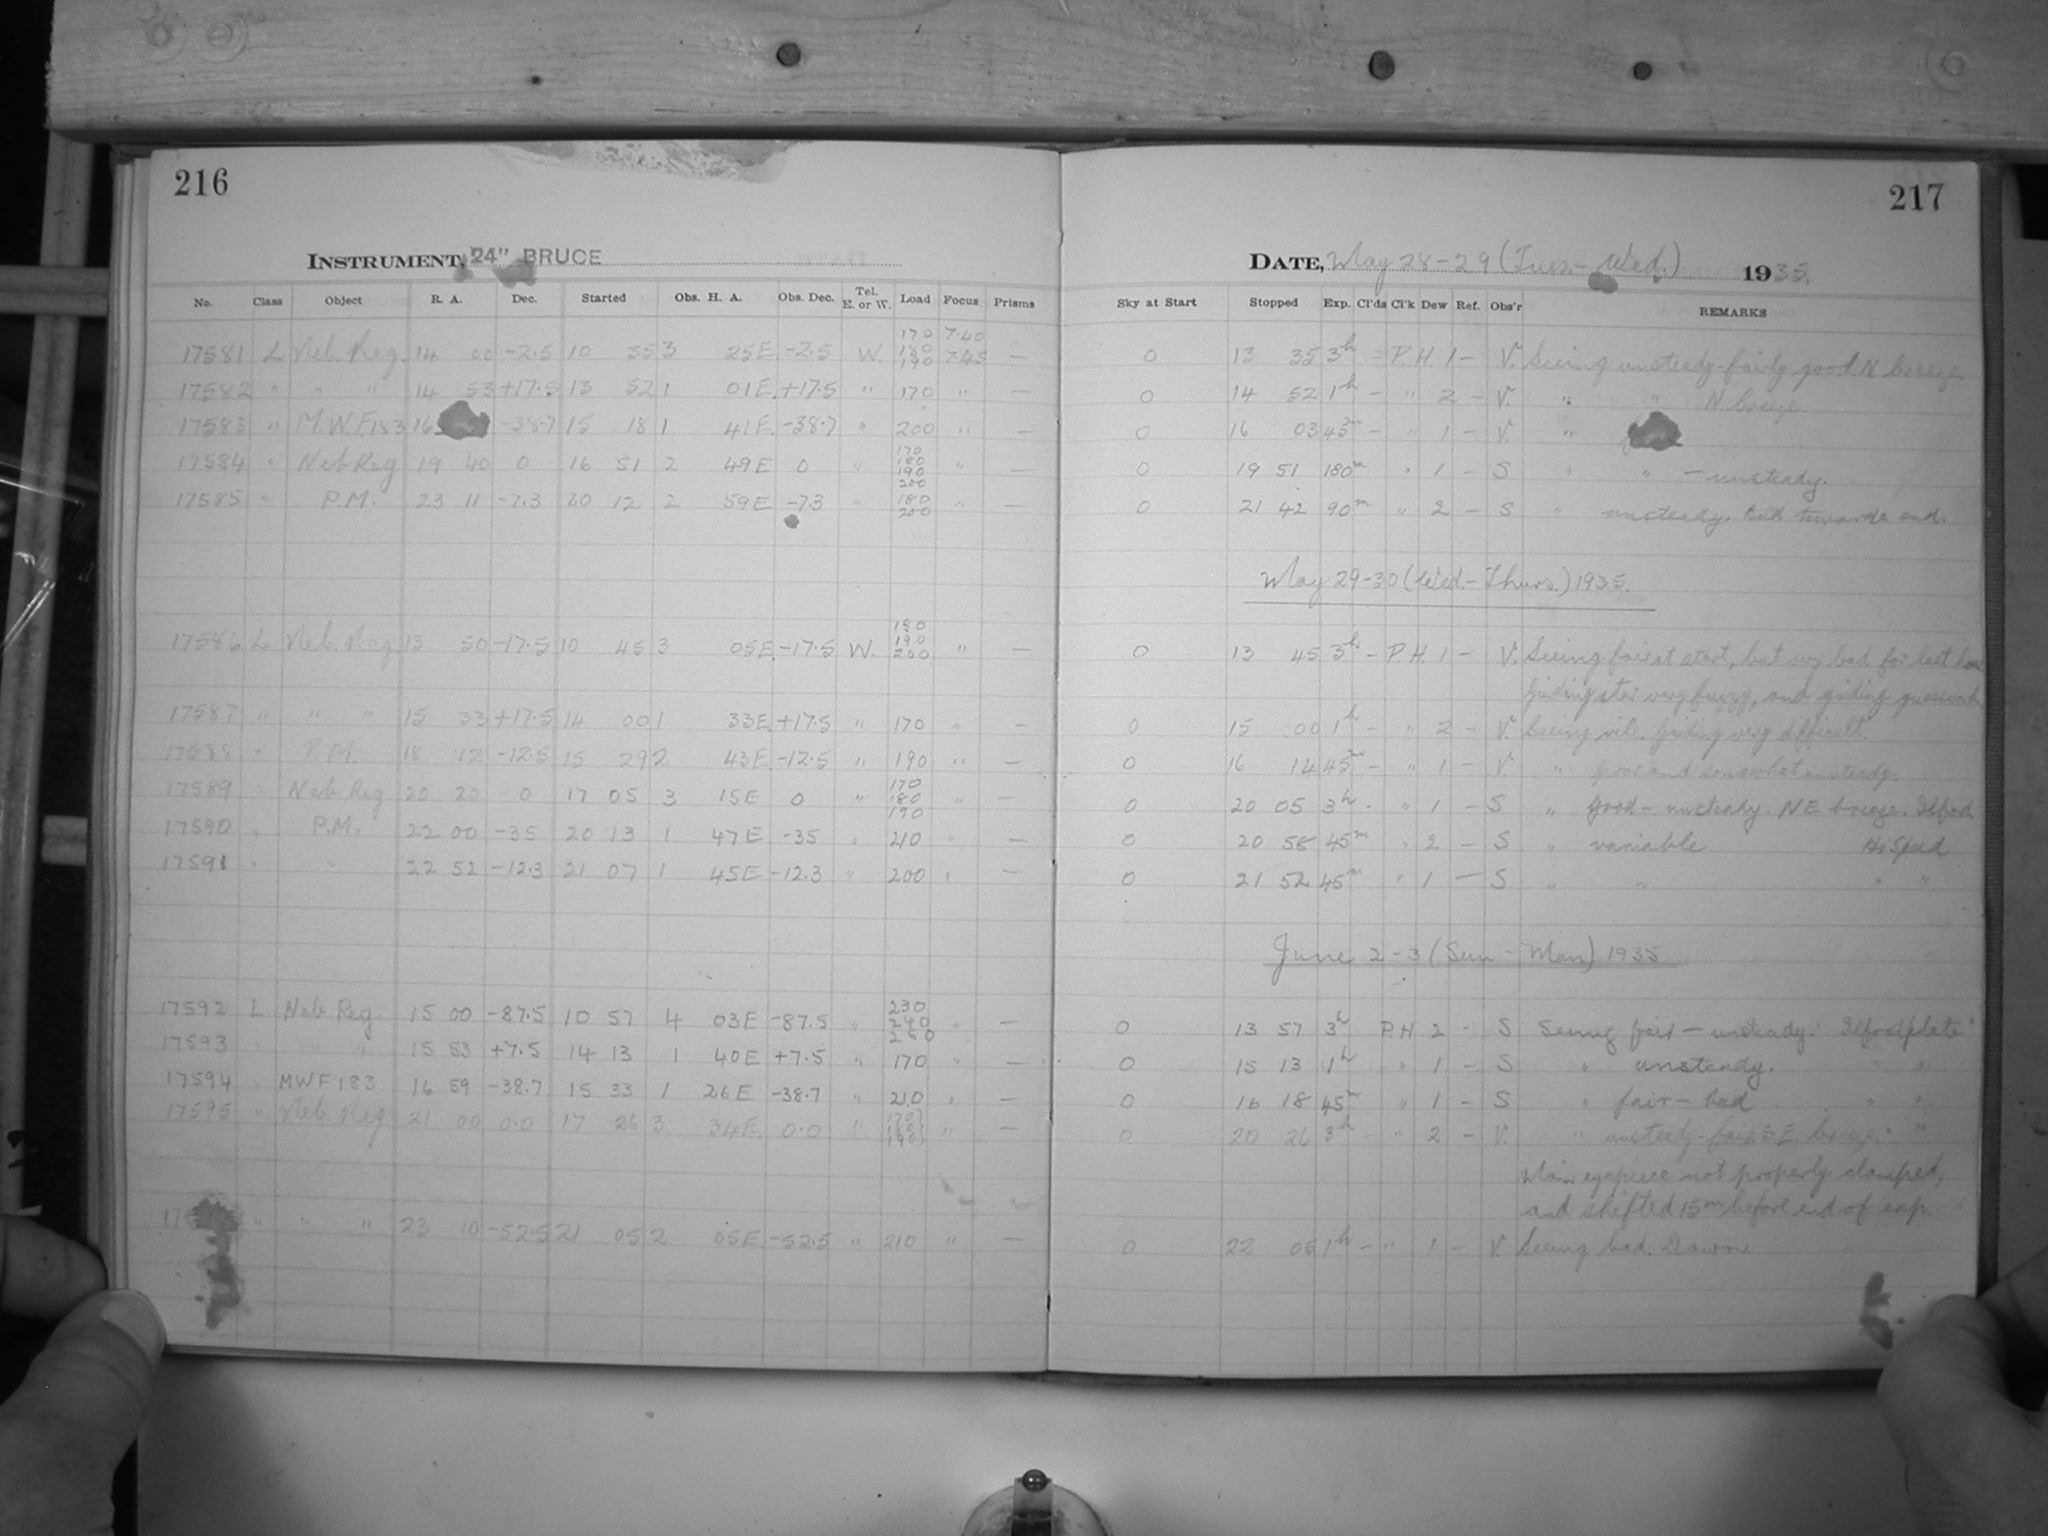 216
217
INSTRUMENT, 24" BRUCE
DATE, May 28-29 (Tues- Wed.) 1935.
No. Class Object R. A. Dec. Started Obs. H. A. Obs. Dec. Tel. E. or W. Load Focus Prisms
Sky at Start Stopped Exp. Cl'ds Cl'k Dew Ref. Obs'r REMARKS
17581 L Neb. Reg. 14 00 -2.5 10 35 3 25E -2.5 W. 170 180 190 7.40 7.45 — 0 13 35 3h - P.H. 1 - V. Seeing unsteady-fairly good. N breeze
17582 " " " 14 53 +17.5 13 52 1 01E. +17.5 " 170 " — 0 14 52 1h - " 2 - V. " " N. breeze.
17583 " M.W.F.183 16 -38.7 15 18 1 41E. -38.7 " 200 " — 0 16 03 45m - " 1 - V. "
17584 " Neb Reg 19 40 0 16 51 2 49E 0 " 170 180 190 " — 0 19 51 180m " 1 - S " " - unsteady.
17585 " P.M. 23 11 -7.3 20 12 2 59E -7.3 " 200 180 200 " — 0 21 42 90m " 2 - S " unsteady. Bad towards end.
May 29-30 (Wed.- Thurs.) 1935.
17586 L Neb. Reg 13 50 -17.5 10 45 3 05E. -17.5 W. 180 190 200 " — 0 13 45 3h - P.H. 1 - V. Seeing fair at start, but very bad for last hour
Guiding star very fuzzy, and guiding guesswork
17587 " " " 15 33 +17.5 14 00 1 33E. +17.5 " 170 " — 0 15 00 1h - " 2 - V. Seeing vile. Guiding very difficult.
17588 " P.M. 18 12 -12.5 15 29 2 43E. -12.5 " 190 " — 0 16 14 45m - " 1 - V. " poor and somewhat unsteady.
17589 " Neb Reg 20 20 0 17 05 3 15E 0 " 170 180 190 " — 0 20 05 3h - " 1 - S " good - unsteady. NE breeze. Ilford
17590 " P.M. 22 00 -35 20 13 1 47E -35 " 210 " — 0 20 58 45m " 2 - S " variable Hi Speed
17591 " " 22 52 -12.3 21 07 1 45E -12.3 " 200 " — 0 21 52 45m " 1 — S " " " "
June 2-3 (Sun - Mon) 1935
17592 L Neb Reg. 15 00 -87.5 10 57 4 03E -87.5 " 230 240 250 " — 0 13 57 3h P.H 2 - S Seeing fair - unsteady. Ilford plate
17593 " " " 15 53 +7.5 14 13 1 40E +7.5 " 170 " — 0 15 13 1h " 1 - S " unsteady. " "
17594 " MWF183 16 59 -38.7 15 33 1 26E -38.7 " 210 " — 0 16 18 45m " 1 - S " fair - bad " "
17595 " Neb. Reg 21 00 0.0 17 26 3 34E. 0.0 " 170 180 190 " — 0 20 26 3h - " 2 - V. " unsteady-fair. S.E. breeze " "
Main eyepiece not properly clamped,
and shifted 15m before end of exp.
" " " 23 10 -52.5 21 05 2 05E. -52.5 " 210 " — 0 22 05 1h - " 1 - V. Seeing bad. Dawn